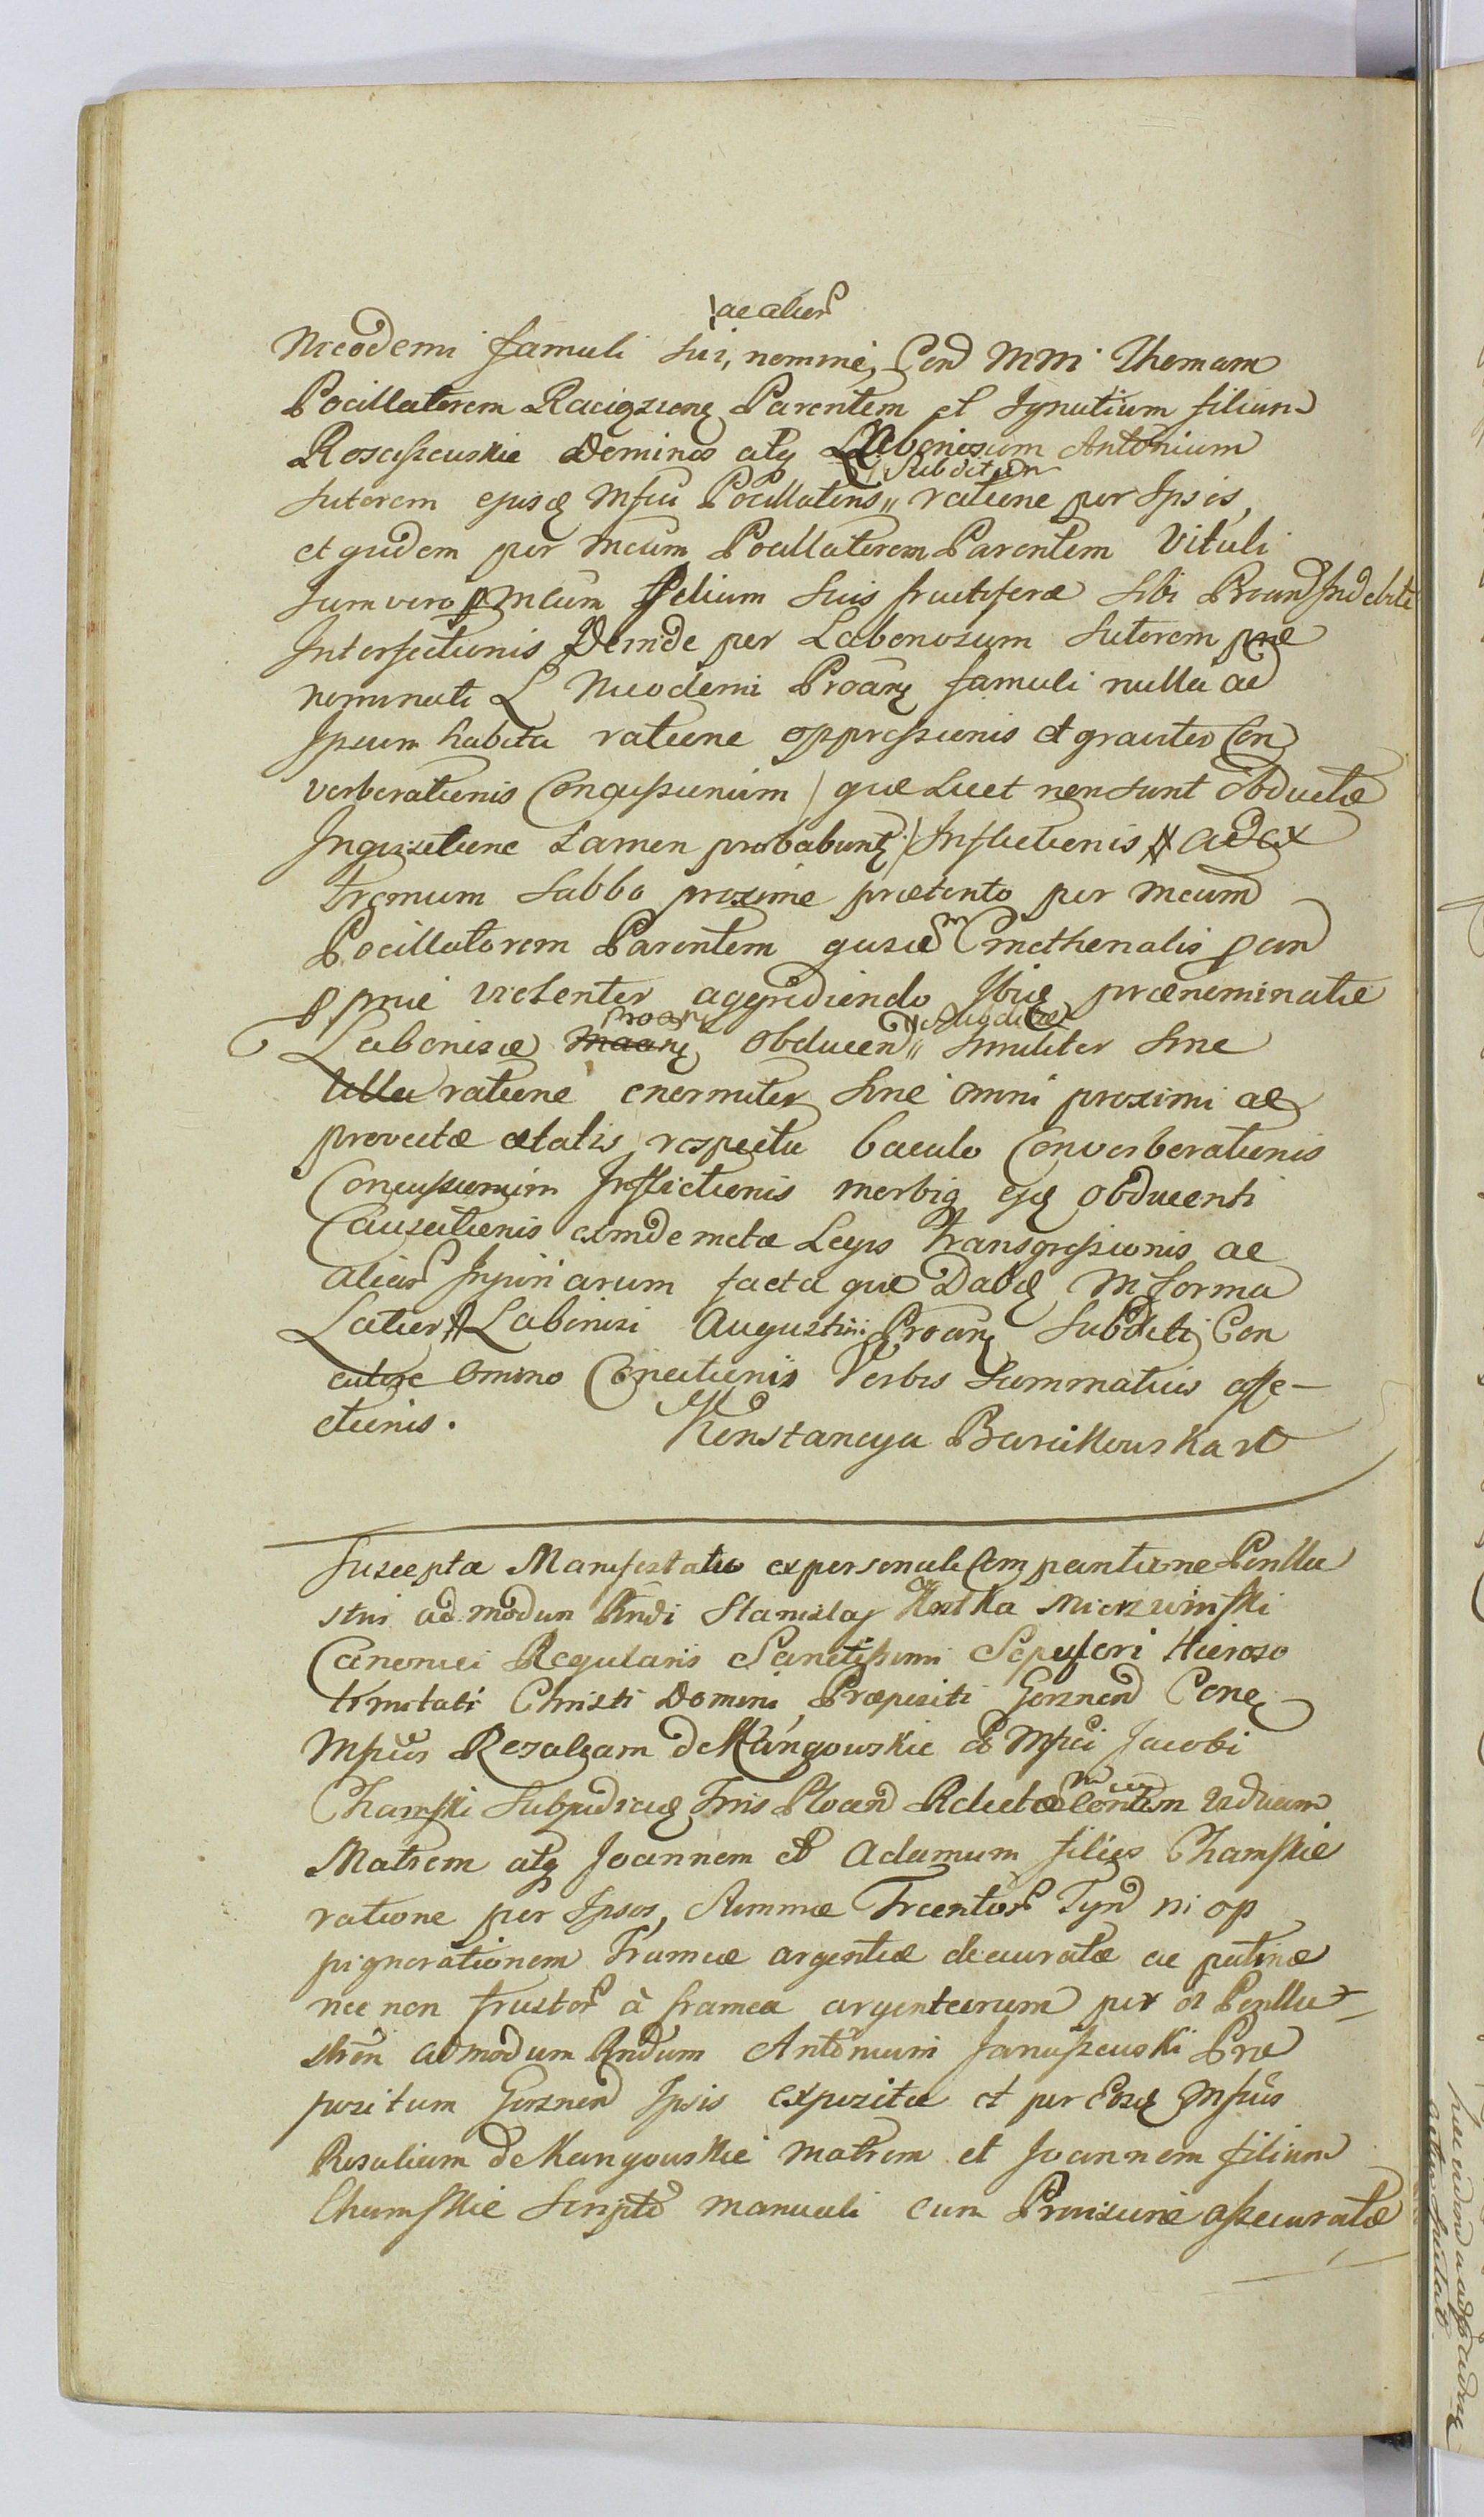 ac alior
Nicodemi famuli sui, nomine, Con Mm Thomam
Pocillatorem Raciązienę Parentem et Ignatium filium
Rosciszewskie Dominos atq Laboriosum Antonium
Subditum
Sutorem ejusq Mfci Pocillatoris,, ratione per Ipsos,
et quidem per Mcum Pocillatorem Parentem Vituli
tum vero p Mcum filium Suis fructiferæ Sibi Proand Indebite
Interfectionis Deinde per Laboriosum Sutorem præ
nominati L Nicodemi Proanę famuli nulla ad
Ipsum habita ratione oppressionis et graviter Con
verberationis Concussionum / quæ Licet non sunt obductæ
Inquisitione tamen probabuntę / Inflictionis ad ex
tremum Sabbo proxime præterito per Mcum
Pocillatorem Parentem
p pmie violenter aggrediendo Ibiq prænominatæ
Proanę
Laboriosæ Maanę Obducend,, similiter sine
ulla ratione enormiter sine omni proximi ac
provectæ ætatis respectu baculo Converberationis
Concussionum Inflictionis morbiq ejq obducenti
Causationis eximde metæ Legis transgressionis ac
alior Injuriarum facta quæ Dabq in forma
Latior Laboriosi Augustini Proanę Subditi Con
omino Conectionis Verbis Summativis affe-
ctionis.
Konstancya Barcikowska
Suscepta Manifestatio ex personali Comparitione Perillu
stris admodum Rndi Stanislaj Kostka Mierzwinski
Canonici Regularis Sanctissimi Sepulcri Hieroso
limitati Christi Domini Præpositi Gorznen Conę
Mfcos Rosaliam de Kangowskie et Mfci Jacobi
Chamski Subjudiciq Tris Ploand Relictæ Viduam
Matrem atq Joannem et Adamum filios Chamskie
ratione per Ipsos, Summæ Trecentor Tynd in op
pignorationem frameæ argenteæ deauratæ ac patinæ
nec non frustor à framea argenteorum per ol Perillu-
strem admodum Rndum Antonium Januszewski Præ
positum Gorznen Ipsis expositæ et per Eosq Mfcos
Rosaliam de Kangowskie Matrem et Joannem filium
Chamskie Scripto manuali cum Provisione assecuratæ